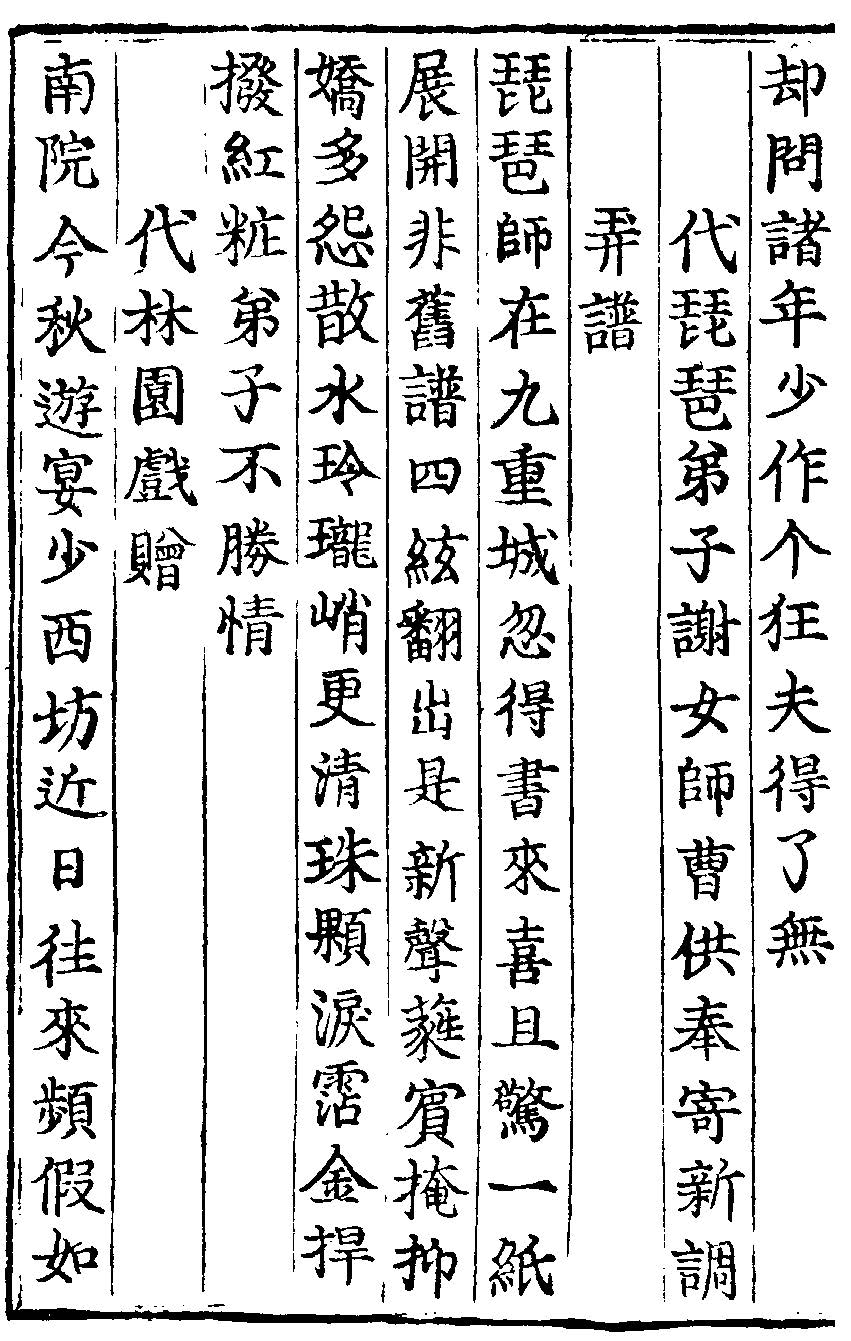 却問諸年少作个狂夫得了無
代琵琶弟子謝女師曹供奉寄新調
弄譜
琵琶師在九重城忽得書來喜且驚一紙
展開非舊譜四絃翻出是新聲蕤賔掩抑
嬌多怨散水玲瓏峭更清珠顆淚霑金捍
撥紅粧弟子不勝情
代林園戲贈
南院今秋遊宴少西坊近日往來頻假如